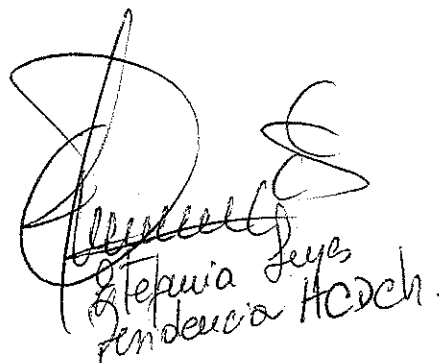 Stefania Leyes
Presidencia HCDch.